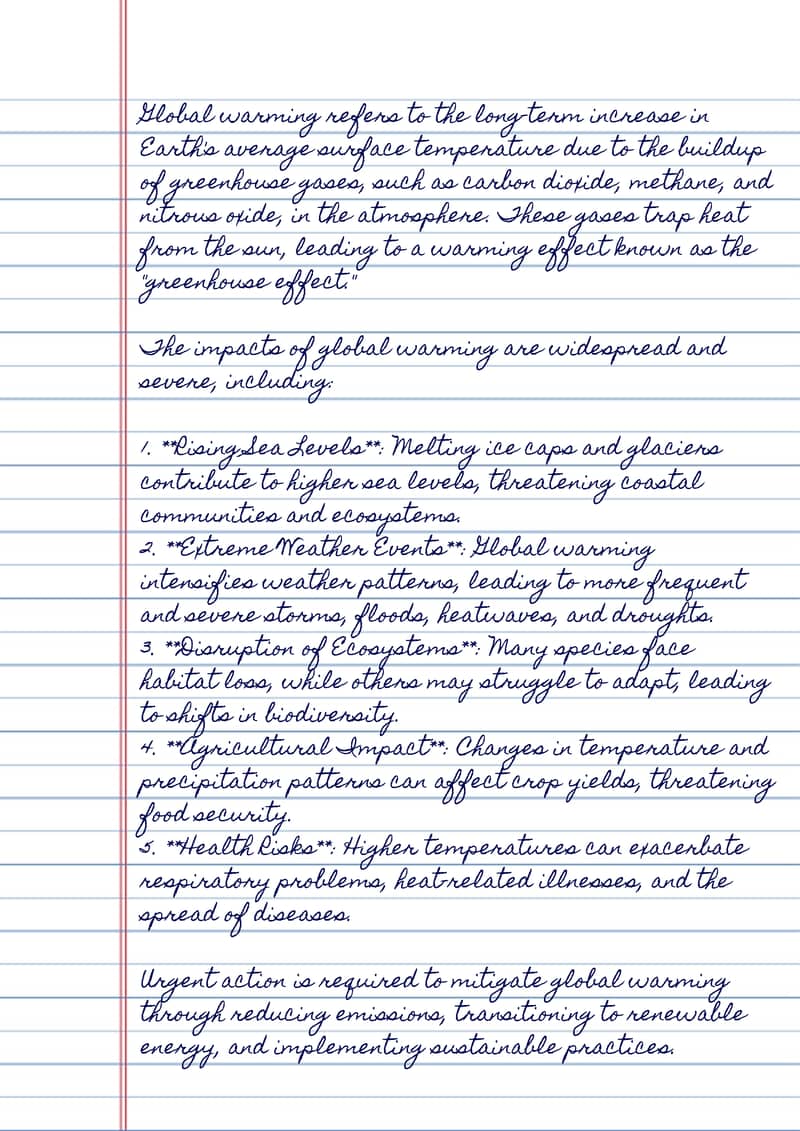 Global warming refers to the long-term increase in
Earth's average surface temperature due to the buildup
of greenhouse gases, such as carbon dioxide, methane, and
nitrous oxide, in the atmosphere. These gases trap heat
from the sun, leading to a warming effect known as the
"greenhouse effect."
The impacts of global warming are widespread and
severe, including:
1. **Rising Sea Levels**: Melting ice caps and glaciers
contribute to higher sea levels, threatening coastal
communities and ecosystems.
2. **Extreme Weather Events**: Global warming
intensifies weather patterns, leading to more frequent
and severe storms, floods, heatwaves, and droughts.
3. **Disruption of Ecosystems**: Many species face
habitat loss, while others may struggle to adapt, leading
to shifts in biodiversity.
4. **Agricultural Impact**: Changes in temperature and
precipitation patterns can affect crop yields, threatening
food security.
5. **Health Risks**: Higher temperatures can exacerbate
respiratory problems, heat-related illnesses, and the
spread of diseases.
Urgent action is required to mitigate global warming
through reducing emissions, transitioning to renewable
energy, and implementing sustainable practices.